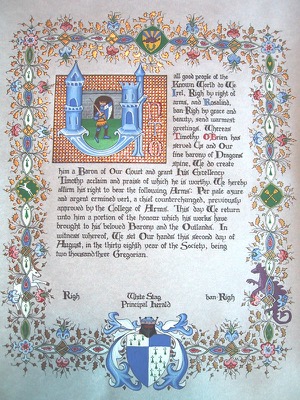 all good people of the
Known World do We
Irel, Righ by right of
arms, and Rosalind,
ban Righ by grace and
beauty, send warmest
greetings. Whereas
Timothy O'Brien has
served Us and Our
fine barony of Dragons'
spine, We do create
him a Baron of Our Court and grant His Excellency
Timothy acclaim and praise of which he is worthy. We hereby
affirm his right to bear the following Arms: Per pale azure
and argent ermined vert, a chief counterchanged, previously
approved by the College of Arms. This day We return
unto him a portion of the honour which his works have
brought to his beloved Barony and the Outlands. In
witness whereof, We set Our hands this second day of
August, in the thirty eighth year of the Society, being
two thousand three Gregorian.
Righ White Stag ban-Righ
Principal Herald